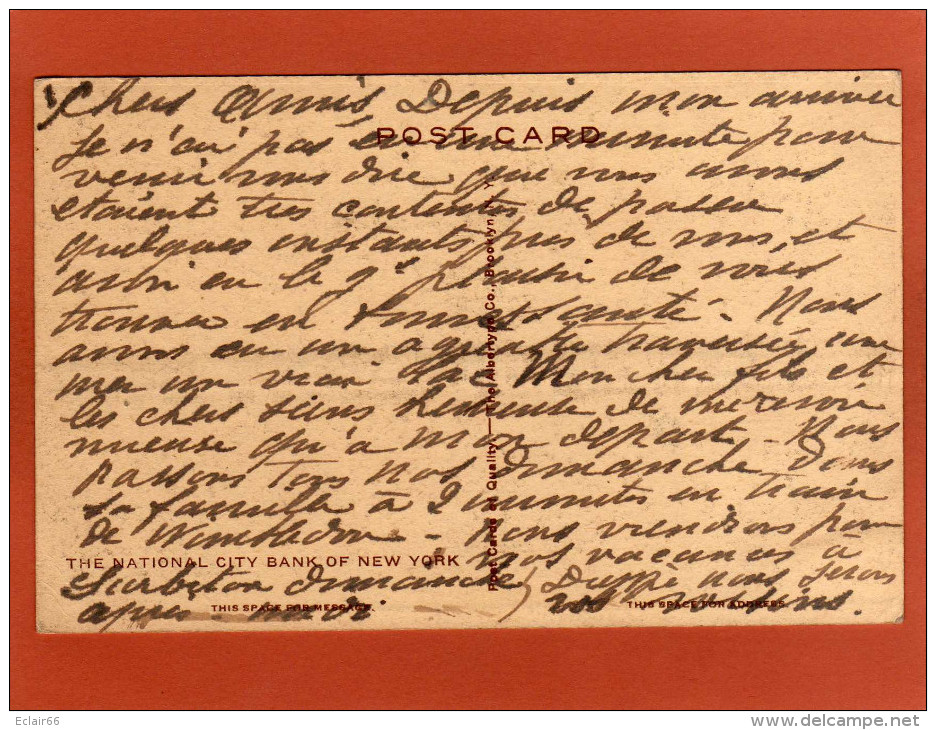 Chers Amis, Depuis mon arriver
POST CARD
je n'ai pas eu une minute pour
venir vous dire que nous avons
etaient tres contents de passer
quelques instants pres de vous, et
avoir eu le gd plaisir de vous
trouver en bonne santé. Nous
avons eu un agreable traversée une
mer un vrai lac Mon cher fils et
les chers siens heureuse de me revoir
mieuse qu'a mon depart. Nous
passons tous nos dimanche dans
sa famille à 2 minutes en train
de Wimbledon - Nous viendrons pour
THE NATIONAL CITY BANK OF NEW YORK
nos vacances à
Surbiton dimanche
Dieppe nous serons
apres midi
vos voisins.
THIS SPACE FOR MESSAGE.
THIS SPACE FOR ADDRESS
Post Cards of Quality. — The Albertype Co., Brooklyn, N. Y.
Eclair66
www.delcampe.net